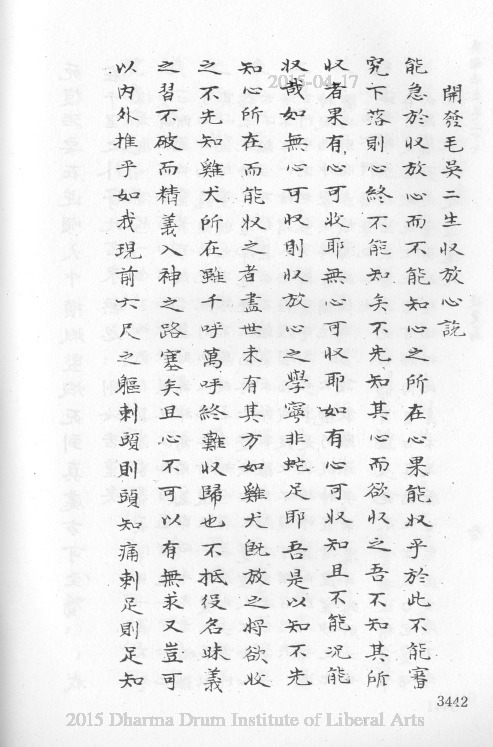 開發毛吳二生收放心說
能急於收放心而不能知心之所在心果能收乎於此不能審
究下落則心終不能知矣不先知其心而欲收之吾不知其所
收者果有心可收耶無心可收耶如有心可收知且不能況能
收哉如無心可收則收放心之學寧非蛇足耶吾是以知不先
知心所在而能收之者盡世未有其方如雞犬既放之將欲收
之不先知雞犬所在雖千呼萬呼終難收歸也不抵役名昧義
之習不破而精義入神之路塞矣且心不可以有無求又豈可
以內外推乎如我現前六尺之軀刺頭則頭知痛刺足則足知
2015-04-17
3442
2015 Dharma Drum Institute of Liberal Arts